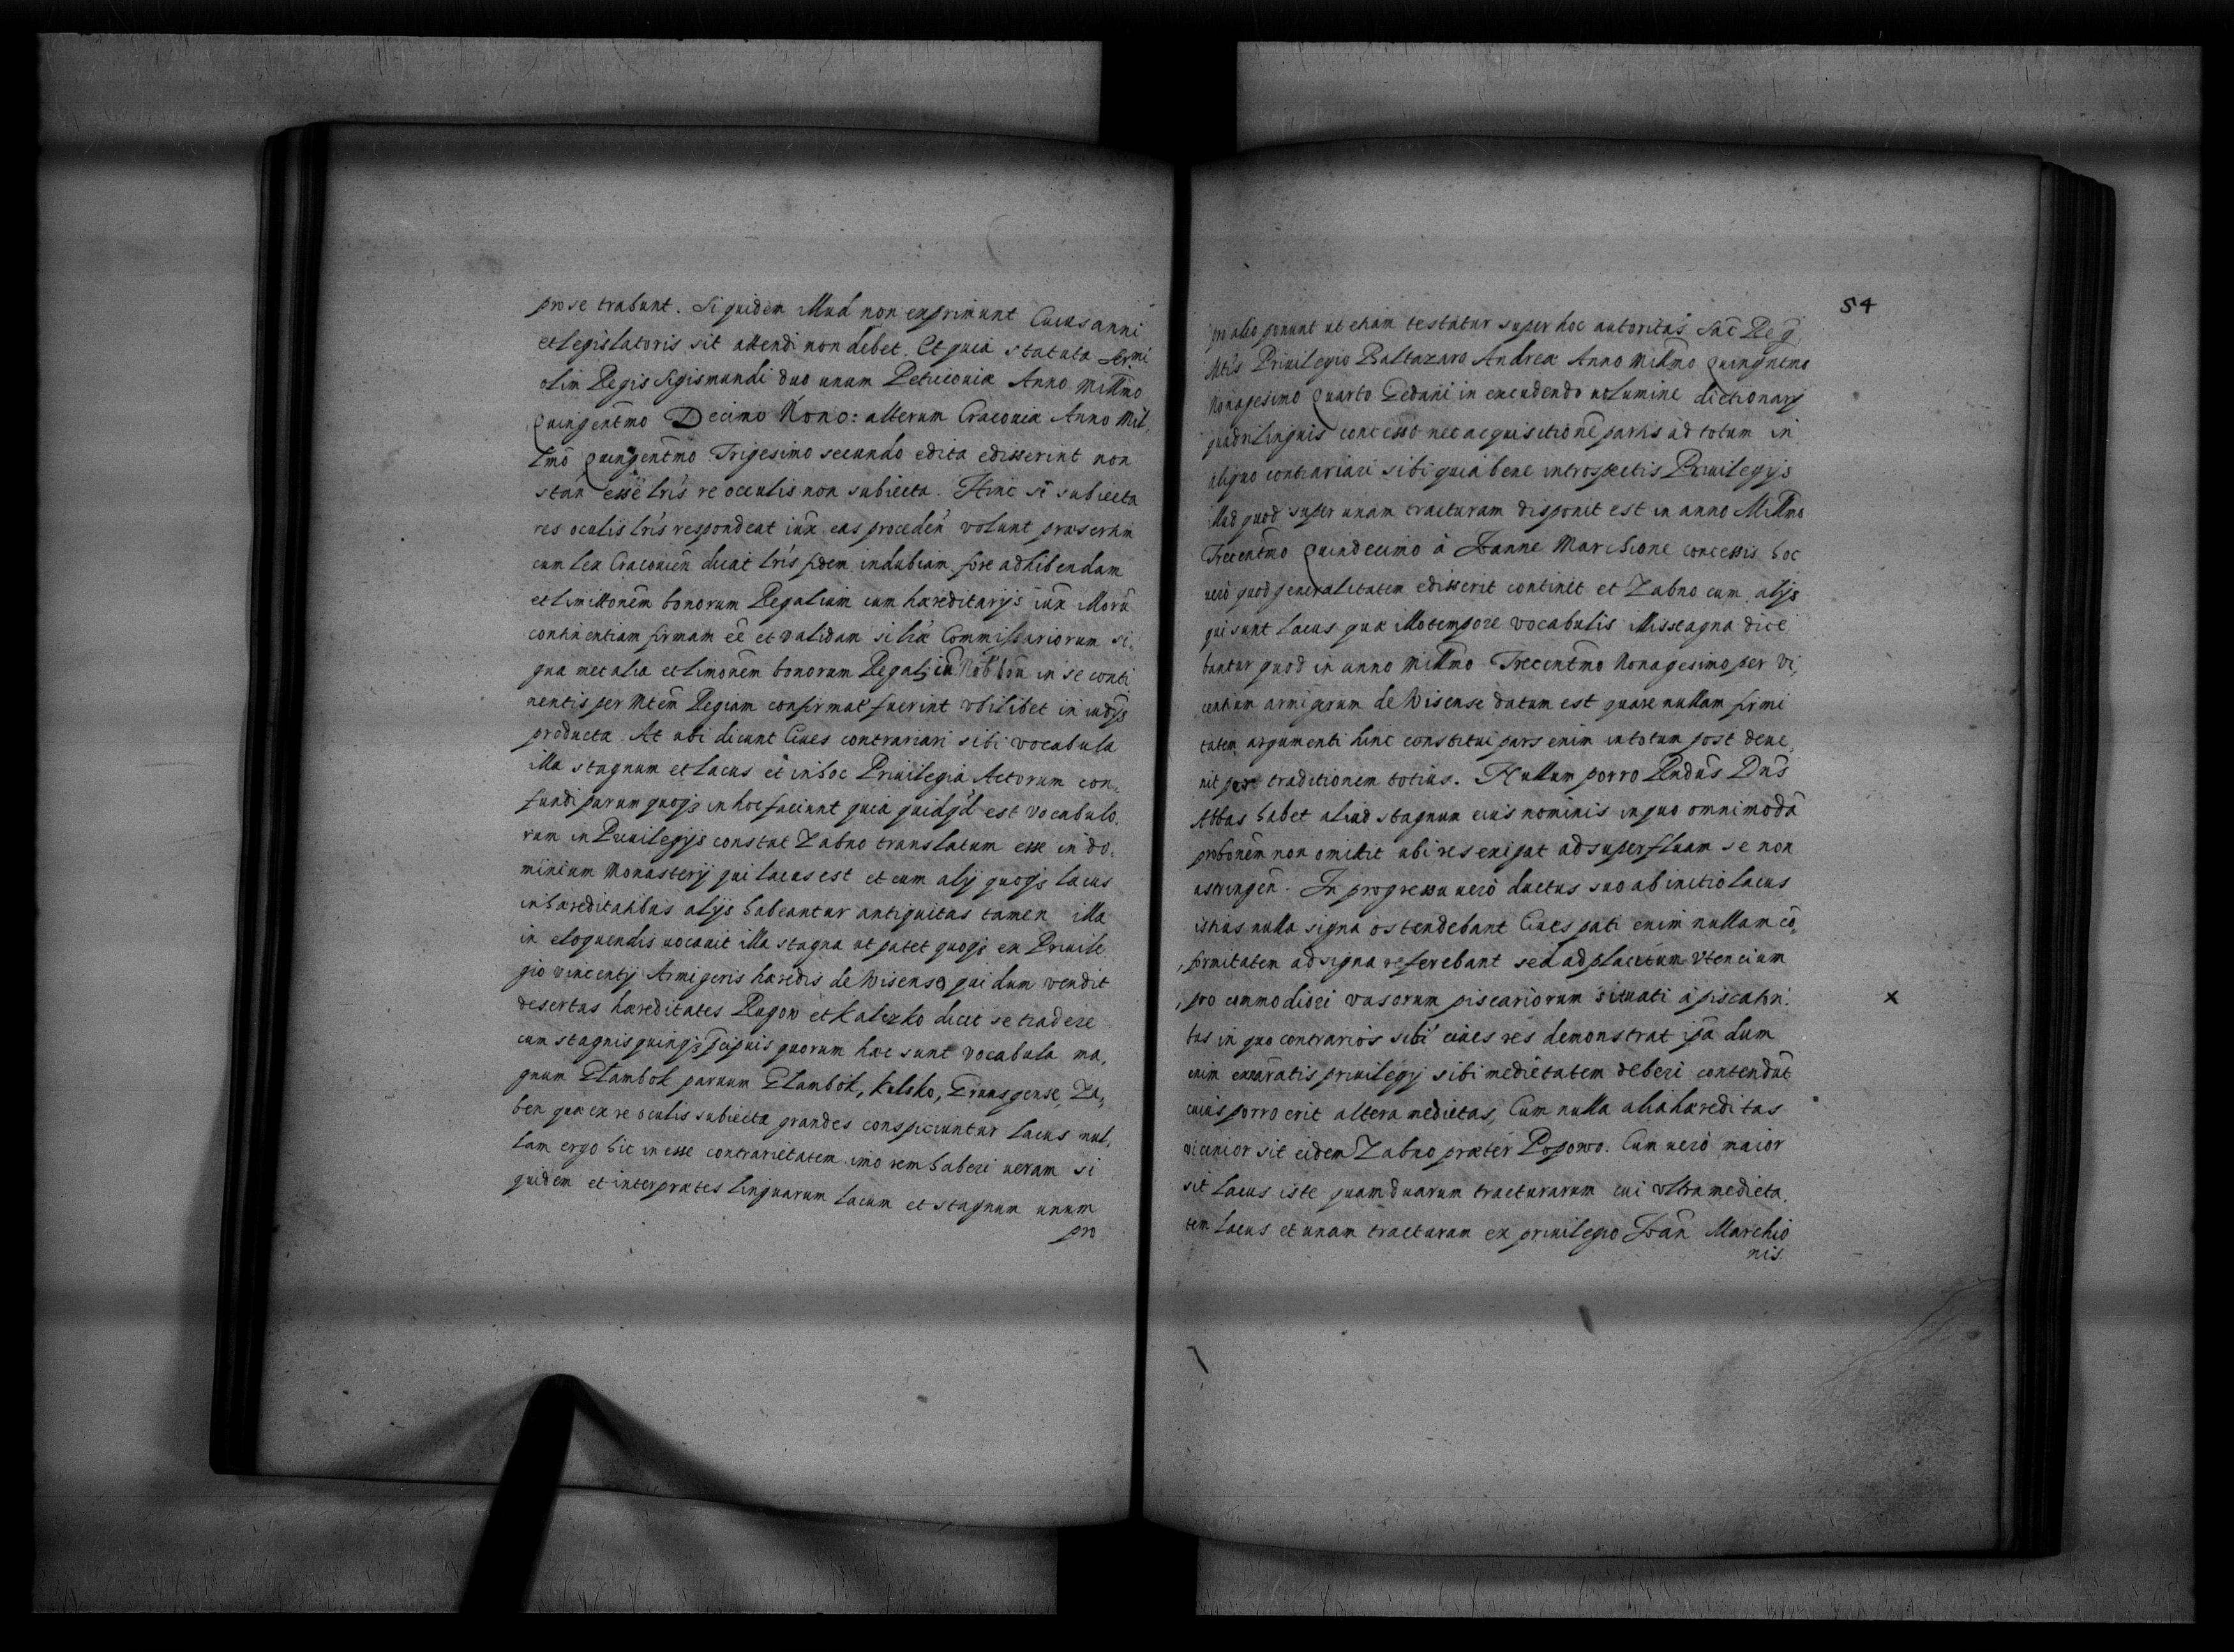 pro se trahunt. Siquidem illud non exprimunt Cuius anni
et legislatoris sit attendi non debet. Et quia statuta Sermi
olim Regis Sigismundi duo unum Petricouiæ Anno Millmo
Quingentmo Decimo Nono: alterum Cracouiæ Anno Mil,
lmo Quingentmo Trigesimo secundo edita edisserint non
stan esse lris re occulis non subiecta. Hinc si subiecta
res oculis lris respondeat iux eas proceden volunt præsertim
cum lex Cracouien dicat lris fidem indubiam fore adhibendam
et limitionem bonorum Regalium cum hæreditarijs iux Moru
continentiam firmam ee et validam si lræ Commissariorum si,
gna metalia et limonem bonorum Regaliu Nobbou in se conti
nentis per Mtem Regiam confirmat fuerint vbilibet in iudijs
producta. At ubi dicunt Ciues contrariari sibi vocabula
illa stagnum et lacus et in hoc Priuilegia Actorum con,
fundi parum quoqз in hoc faciunt quia quidqd est vocabulo,
rum in Priuilegijs constat Zabno translatum esse in do,
minium Monasterij qui lacus est et cum alij quoqз lacus
in hæreditatibus alijs habeantur antiquitas tamen illa
in eloquendis uocauit illa stagna ut patet quoqз ex Priuile
gio Vincentij Armigeris hæredis de Wisense qui dum vendit
desertas hæreditates Rugow et Kaliszko dicit se tradere
cum stagnis quinqз pcipuis quorum hæc sunt vocabula ma,
gnum Glambok paruum Glambok, Kulsko, Grunsgense, Za,
ben quæ ex re oculis subiecta grandes conspiciuntur lacus nul,
lam ergo hic inesse contrarietatem imo rem haberi ueram si
quidem et interprætes linguarum lacum et stagnum unum
pro
54
pro alio ponunt ut etiam testatur super hoc autoritas Sac Reg
Mtis Priuilegio Baltazaro Andreæ Anno Millmo Quingntmo
Nonagesimo Quarto Gedani in excudendo uolumine dictionarij
quadrilinguis concesso nec acquisitione partis ad totum in
aliquo contrariari sibi quia bene introspectis Priuilegijs
illud quod super unam tracturam disponit est in anno Millmo
Trecentmo Quindecimo à Joanne Marchione concessis hoc
uero quod generalitatem edisserit continet et Zabno cum alijs
qui sunt lacus quæ illo tempore vocabulis illis stagna dice
bantur quod in anno Millmo Trecentmo Nonagesimo per Vi,
centium armigerum de Wisense datum est quare nullam firmi
tatem argumenti hinc constitui pars enim in totum post deue,
nit post traditionem totius. Nullum porro Rndus Dns
Abbas habet aliud stagnum eius nominis in quo omnimoda
probonem non omittit ubi res exigat ad superfluam se non
astringen. In progressu uero ductus suo ab initio lacus
istius nulla signa ostendebant Ciues pati enim nullam co,
formitatem ad signa referebant sed ad placitum Vtencium
pro commodiori vasorum piscariorum situati à piscatori
bus in quo contrarios sibi ciues res demonstrat ipa dum
enim exaratis priuilegij sibi medietatem deberi contendut
cuius porro erit altera medietas, Cum nulla alia hæreditas
x
uicinior sit eidem Zabno præter Popowo. Cum uero maior
sit lacus iste quam duarum tracturarum cui vltra medieta,
tem lacus et unam tracturam ex priuilegio Joan Marchio
nis